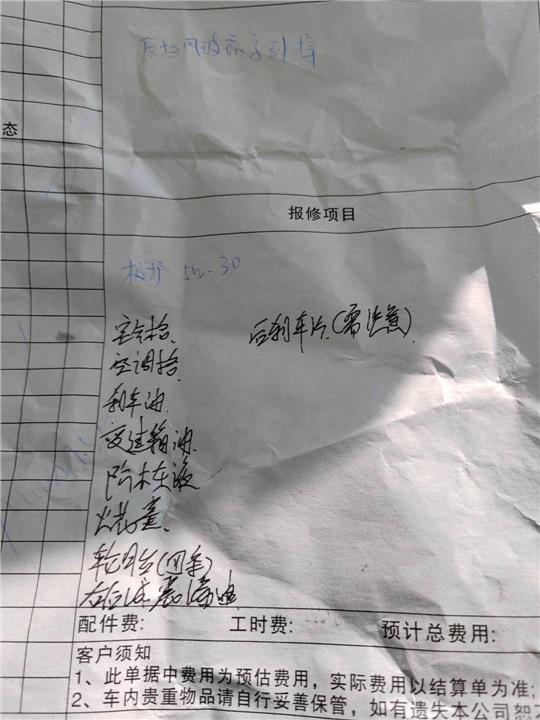 后挡风玻璃
态
报修项目
5W-30
空气格 后刹车片(需注意)
空调格
刹车油
变速箱油
防冻液
火花塞
轮胎(四条)
右后减震漏油
配件费: 工时费: 预计总费用:
客户须知
1、此单据中费用为预估费用，实际费用以结算单为准;
2、车内贵重物品请自行妥善保管，如有遗失本公司恕